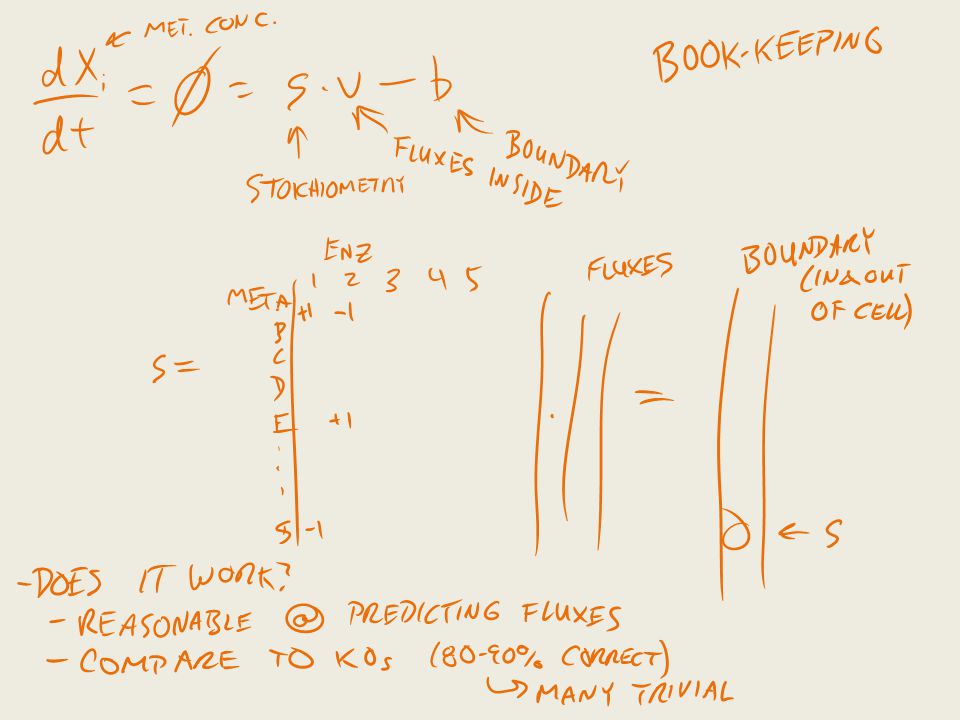 dXi/dt = Ø = S · V - b
← MET. CONC.
BOOK-KEEPING
STOICHIOMETRY
FLUXES INSIDE
BOUNDARY
ENZ
1 2 3 4 5
FLUXES
BOUNDARY
(IN & OUT
OF CELL)
MET A +1 -1
B
C
S =
D
E +1
=
S -1
0 ← S
- DOES IT WORK?
- REASONABLE @ PREDICTING FLUXES
- COMPARE TO KOs (80-90% CORRECT)
↳ MANY TRIVIAL